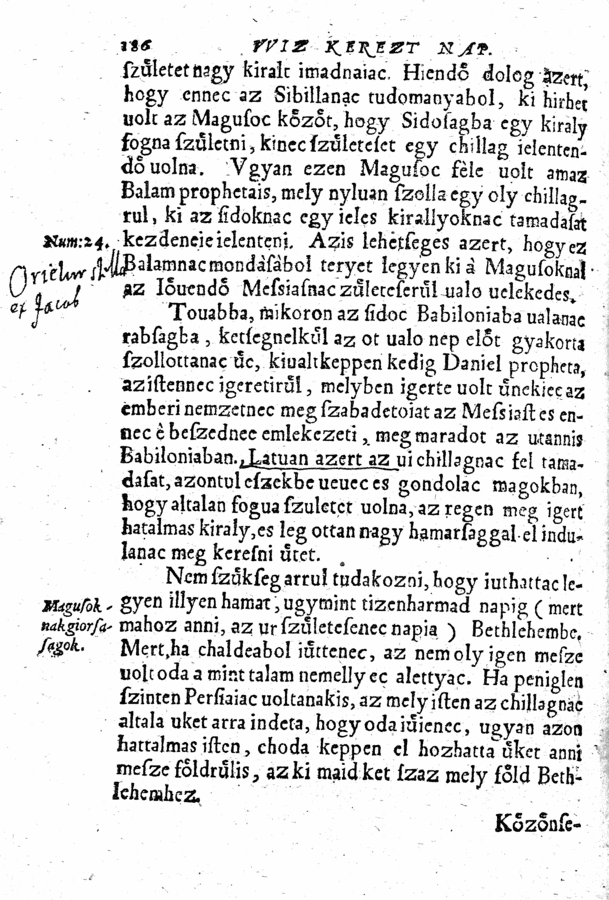 186 VVIZ KEREZT NAP.
ſzuͤletet nagy kiralt imadnaiac. Hiendoͤ dolog azert,
hogy ennec az Sibillanac tudomanyabol, ki hirhet
uolt az Maguſoc koͤzoͤt, hogy Sidoſagba egy kiraly
fogna ſzuͤletni, kinec ſzuͤleteſet egy chillag ielenten-
doͤ uolna. Vgyan ezen Maguſoc fèle uolt amaz
Balam prophetais, mely nyluan ſzolla egy oly chillag-
rul, ki az ſidoknac egy ieles kirallyoknac tamadaſat
Num:24. kezdeneie ielenteni. Azis lehetſeges azert, hogy ez
Orietur stella Balamnac mondàſàbol teryet legyen ki à Maguſoknal
ex Jacob az Ioͤuendoͤ Meſsiaſnac zuͤleteſeruͤl ualo uelekedes.
Touabba, mikoron az ſidoc Babiloniaba ualanac
rabſagba, ketſegnelkuͤl az ot ualo nep eloͤt gyakorta
ſzollottanac uͤc, kiualtkeppen kedig Daniel propheta,
az iſtennec igeretiruͤl, melyben igerte uolt uͤnekiec az
emberi nemzetnec meg ſzabadetoiat az Meſsiaſt es en-
nec è beſzednec emlekezeti, meg maradot az utannis
Babiloniaban. Latuan azert az ui chillagnac fel tama-
daſat, azontul eſzekbe ueuec es gondolac magokban,
hogy altalan fogua ſzuletet uolna, az regen meg igert
hatalmas kiraly, es leg ottan nagy hamarſaggal el indu-
lanac meg kereſni uͤtet.
Nem ſzuͤkſeg arrul tudakozni, hogy iuthattac le-
Maguſok- gyen illyen hamar, ugymint tizenharmad napig ( mert
nak giorſa- mahoz anni, az ur ſzuͤleteſenec napia ) Bethlehembe.
ſagok. Mert, ha chaldeabol iuͤttenec, az nem oly igen meſze
uolt oda a mint talam nemelly ec alettyac. Ha peniglen
ſzinten Perſiaiac uoltanakis, az mely iſten az chillagnac
altala uket arra indeta, hogy oda iuͤienec, ugyan azon
hattalmas iſten, choda keppen el hozhatta uͤket anni
meſze foͤldruͤlis, az ki maid ket ſzaz mely foͤld Beth-
lehemhez.
Koͤzoͤnſe-